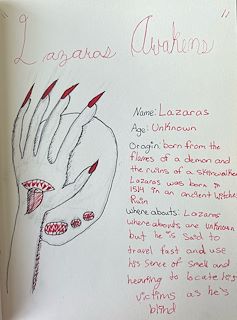 "Lazaras Awakens"
Name: Lazaras
Age: Unknown
Oragin: born from the
flames of a demon and
the ruins of a skinwalker
Lazaras was born in
1514 in an ancient Witches
Ruin
whereabouts: Lazaras
whereabouts are unknown
but he is said to
travel fast and use
his sense of smell and
hearting to locate his
victims as he's
blind